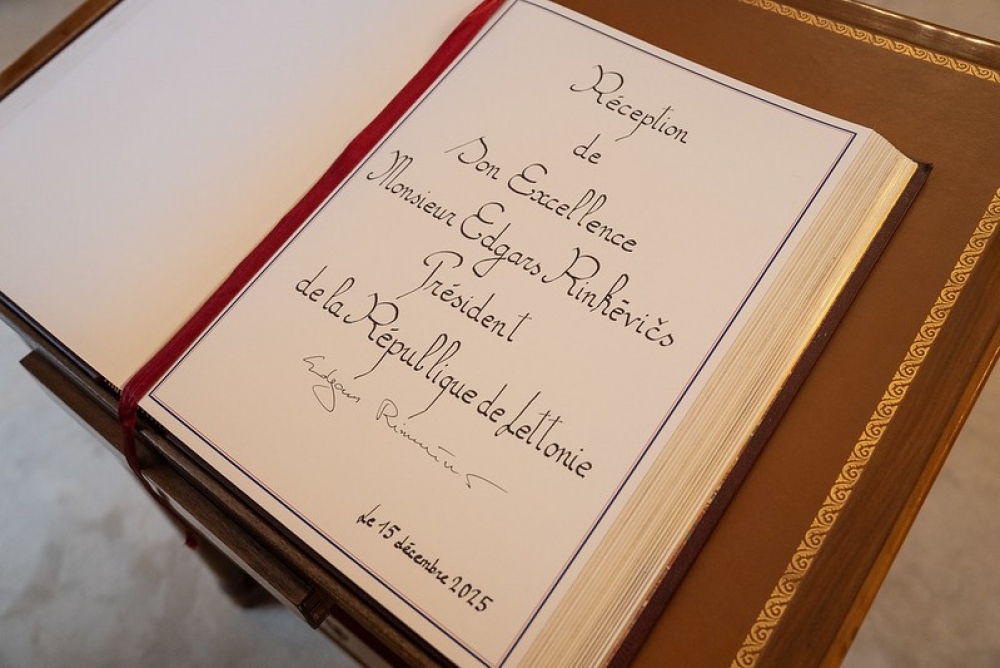 Réception
de
Son Excellence
Monsieur Edgars Rinkēvičs
Président
de la République de Lettonie
Edgars
Le 15 décembre 2025